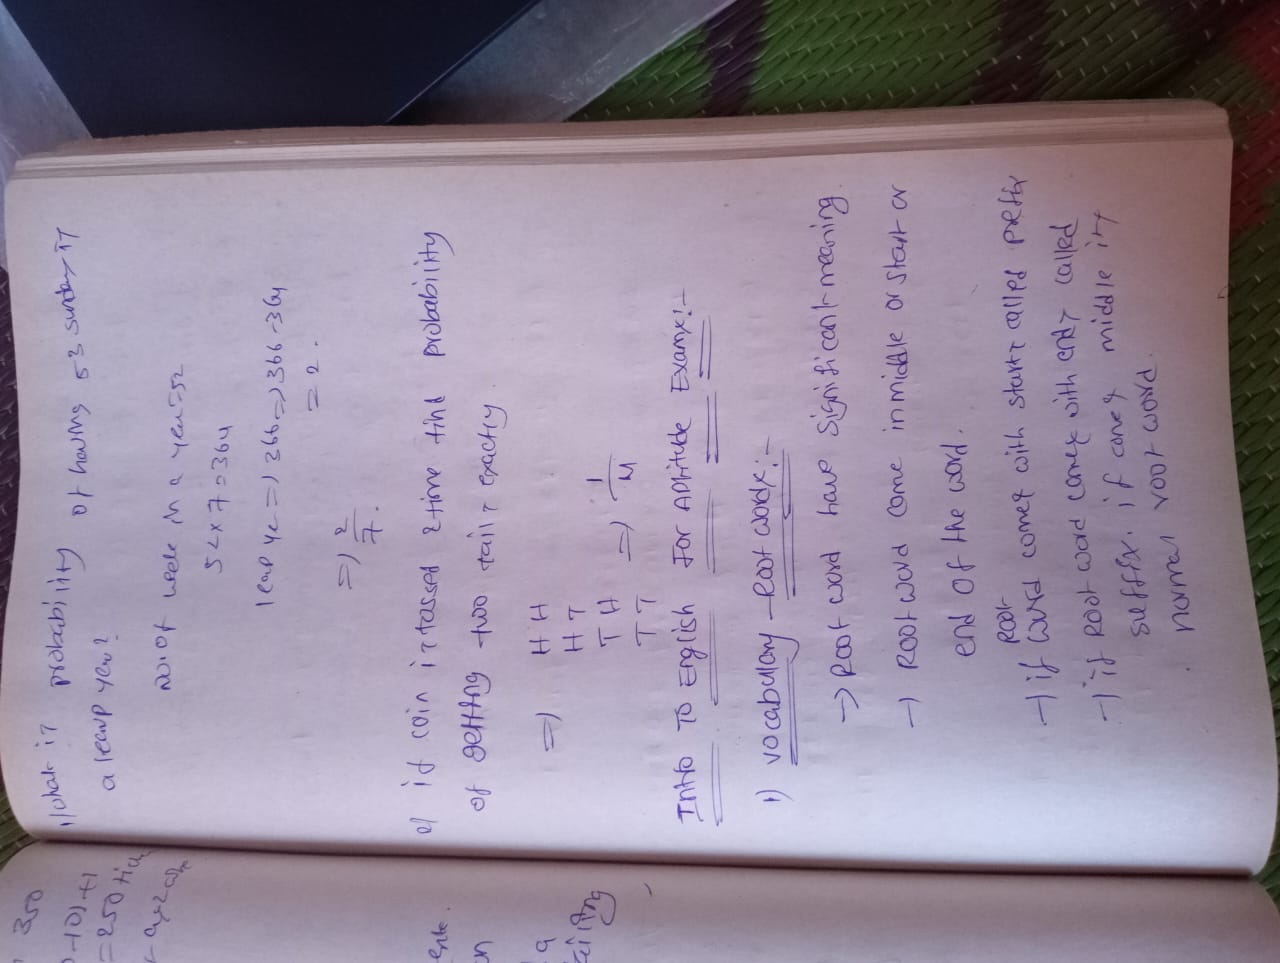 1) what is probability of having 53 sunday is
a leap year?
no. of week in a year = 52
52 x 7 = 364
leap ye => 366 => 366 - 364
= 2.
=> 2/7.
2) if coin is tossed 2 time find probability
of getting two tails exactly
=> H H
H T
T H => 1/4
T T
Intro To English For Aptitude Exams:-
1) vocabulary - Root words:-
-> Root word have significant meaning.
-> Root word come in middle or start or
end of the word.
-> if Root word comes with starts called prefix
-> if Root word comes with ends called
suffix. if comes middle its
normal root word.
350
+10)+1
=250